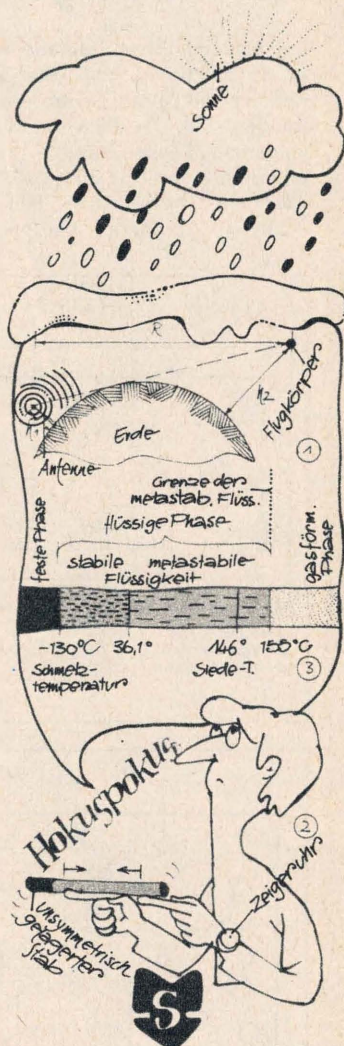 Sonne
R
h1
h2
Flugkörper
Erde
Antenne
1
Grenze der
metastab. Flüss.
flüssige Phase
feste Phase
gasförm.
Phase
stabile metastabile
Flüssigkeit
-130°C 36,1° 146° 155°C
Schmelz-
temperatur
Siede-T.
3
Hokuspokus
2
Zeigeruhr
Unsymmetrisch
gelagerter
Stab
S